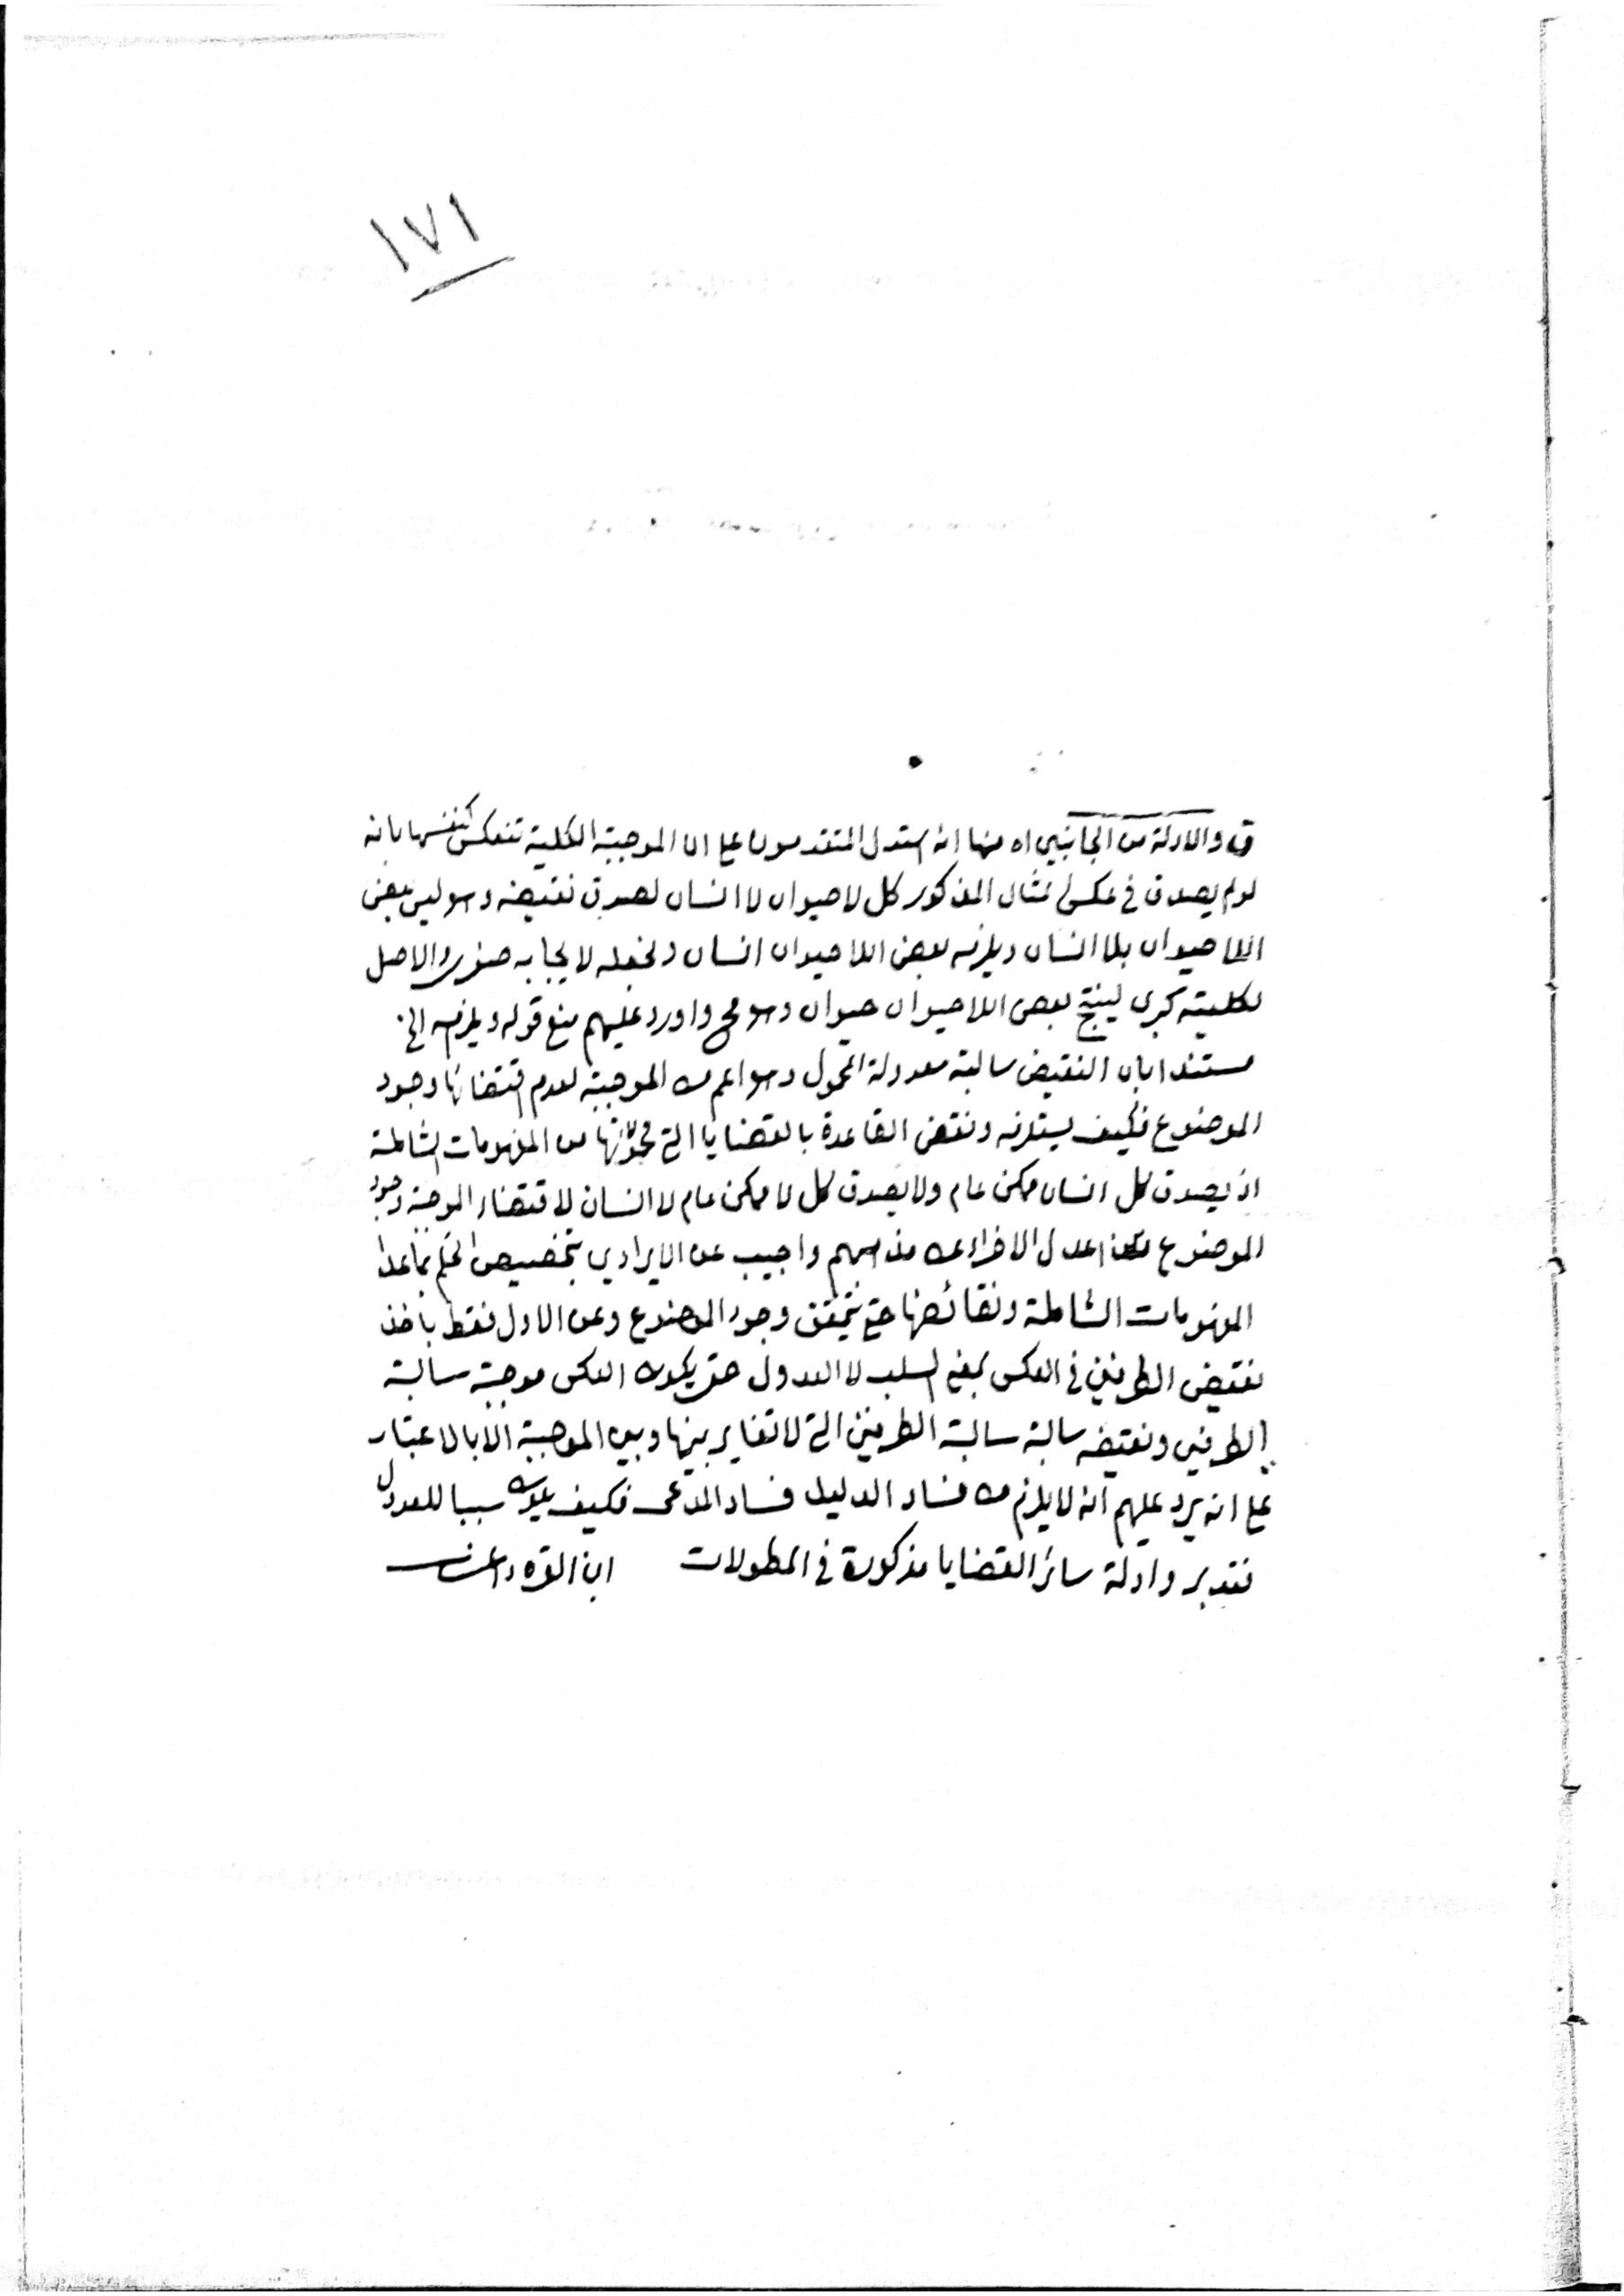 ١٧١
ق والادلة من الجانبين اه منها انه استدل المتقدمون على ان الموجبة الكلية تنعكس كنفسها بانه
لو لم يصدق في عكس المثال المذكور كل لا حيوان لا انسان لصدق نقيضه وهو ليس بعض
اللا حيوان بلا انسان ويلزمه بعض اللا حيوان انسان ونجعله لايجابه صغرى والاصل
لكليته كبرى لينتج بعض اللا حيوان حيوان وهو مح واورد عليهم منع قوله ويلزمه الخ
مستندا بان النقيض سالبة معدولة المحمول وهو اعم من الموجبة لعدم اقتضائها وجود
الموضوع فكيف يستلزمه ونقض القاعدة بالقضايا التي محمولاتها من المفهومات الشاملة
اذ يصدق كل انسان ممكن عام ولا يصدق كل لا ممكن عام لا انسان لاقتضاء الموجبة وجود
الموضوع عدل الافراء عن مذاهبهم واجيب عن الايرادين بتخصيص الحكم بما عدا
المفهومات الشاملة ونقائضها حتى يتحقق وجود الموضوع وعن الاول فقط باخذ
نقيض الطرفين في العكس بمعنى السلب لا العدول حتى يكون العكس موجبة سالبة
الطرفين ونقيضه سالبة سالبة الطرفين التي لا تغاير بينها وبين الموجبة الا بالاعتبار
على انه يرد عليهم انه لا يلزم من فساد الدليل فساد المدعى فكيف يكون سببا للعدول
فتدبر وادلة سائر القضايا مذكورة في المطولات ابن القره داغى